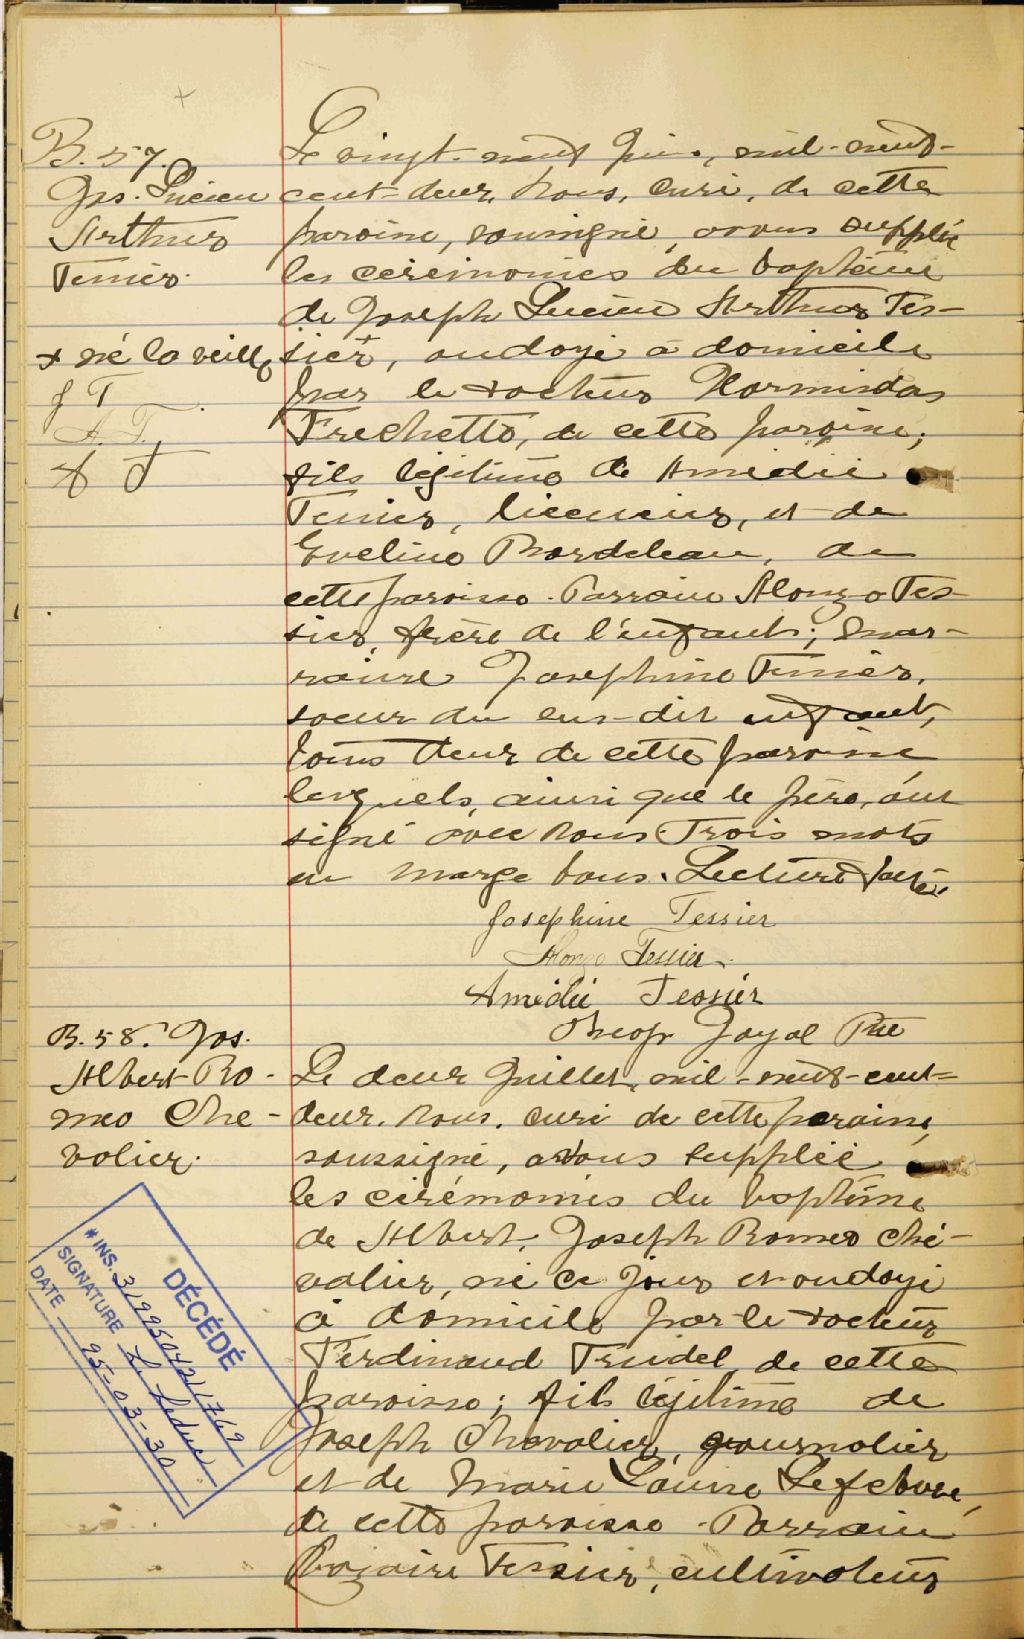 B. 57.
Jos. Lucien
Arthur
Tessier.
+ né la veille
J T
A. T.
A T
Le vingt-neuf Juin, mil-neuf-
cent-deux, Nous, curé, de cette
paroisse, soussigné, avons suppléé
les cérémonies du baptême
de Joseph Lucien Arthur Tes-
sier+, ondoyé à domicile
par le docteur Hormisdas
Frechette, de cette paroisse;
fils légitime de Amédée
Tessier, licencier, et de
Eveline Bordeleau, de
cette paroisse. Parrain Alonzo Tes-
sier, frère de l'enfant; mar-
raine Josephine Tessier,
soeur du sus-dit enfant,
tous deux de cette paroisse
lesquels, ainsi que le père, ont
signé avec Nous. Trois mots
en marge bons. Lecture faite.
Josephine Tessier
Alonzo Tessier.
Amédée Tessier
Jayal Ptre
B. 58. Jos.
Albert Ro-
meo Che-
valier.
Le deux Juillet, mil-neuf-cent-
deux, Nous, curé de cette paroisse,
soussigné, avons suppléé
les cérémonies du baptême
de Albert, Joseph Romeo Che-
valier, né ce jour et ondoyé
à domicile par le docteur
Ferdinand Trudel, de cette
paroisse; fils légitime de
Joseph Chevalier, journalier
et de Marie Louise Lefebvre,
de cette paroisse. Parrain
Tessier, cultivateur
DÉCÉDÉ
# INS. 319950421769
SIGNATURE L. Leduc
DATE 95-03-30